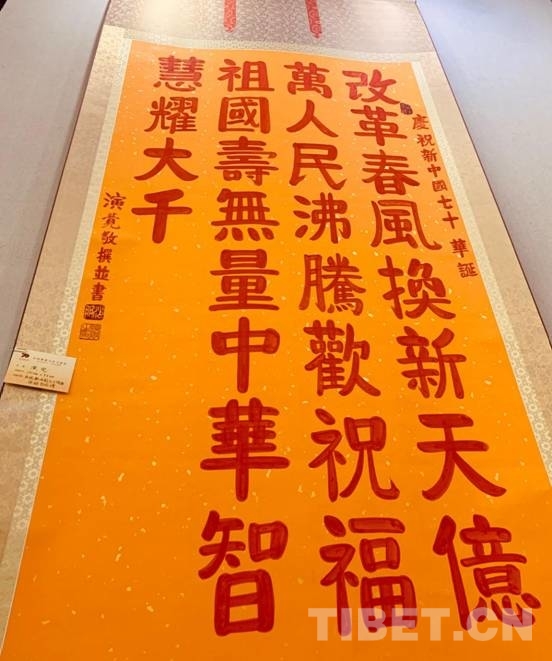 慶祝新中國七十華誕
改革春風換新天億
萬人民沸騰歡祝福
祖國壽無量中華智
慧耀大千
演覺敬撰並書
TIBET.CN